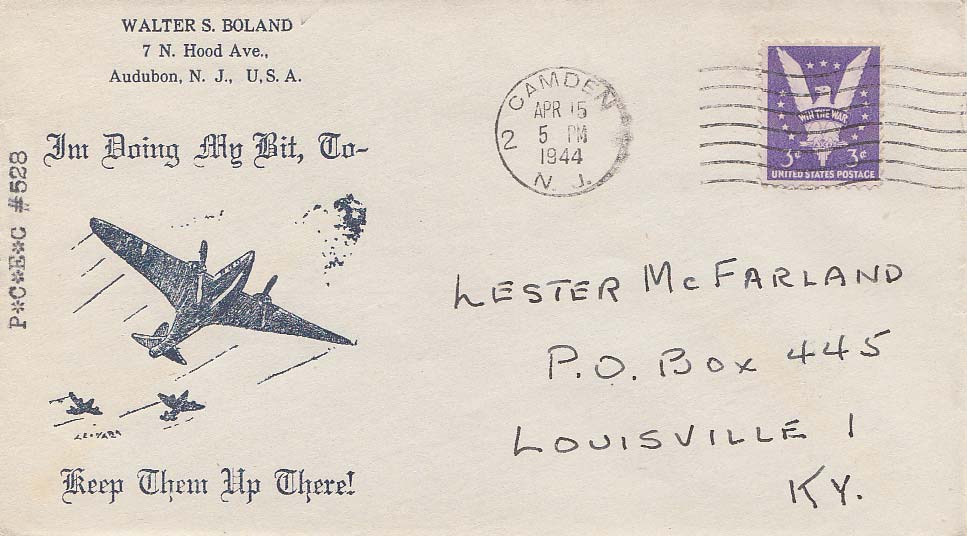 WALTER S. BOLAND
7 N. Hood Ave.,
Audubon, N. J., U, S. A.
Im Doing My Bit, To-
P*C*E*C #528
LEONARD
Keep Them Up There!
CAMDEN
APR 15
5 PM
1944
2
N. J.
WIN THE WAR
3¢ 3¢
UNITED STATES POSTAGE
LESTER McFARLAND
P.O. Box 445
LOUISVILLE 1
KY.